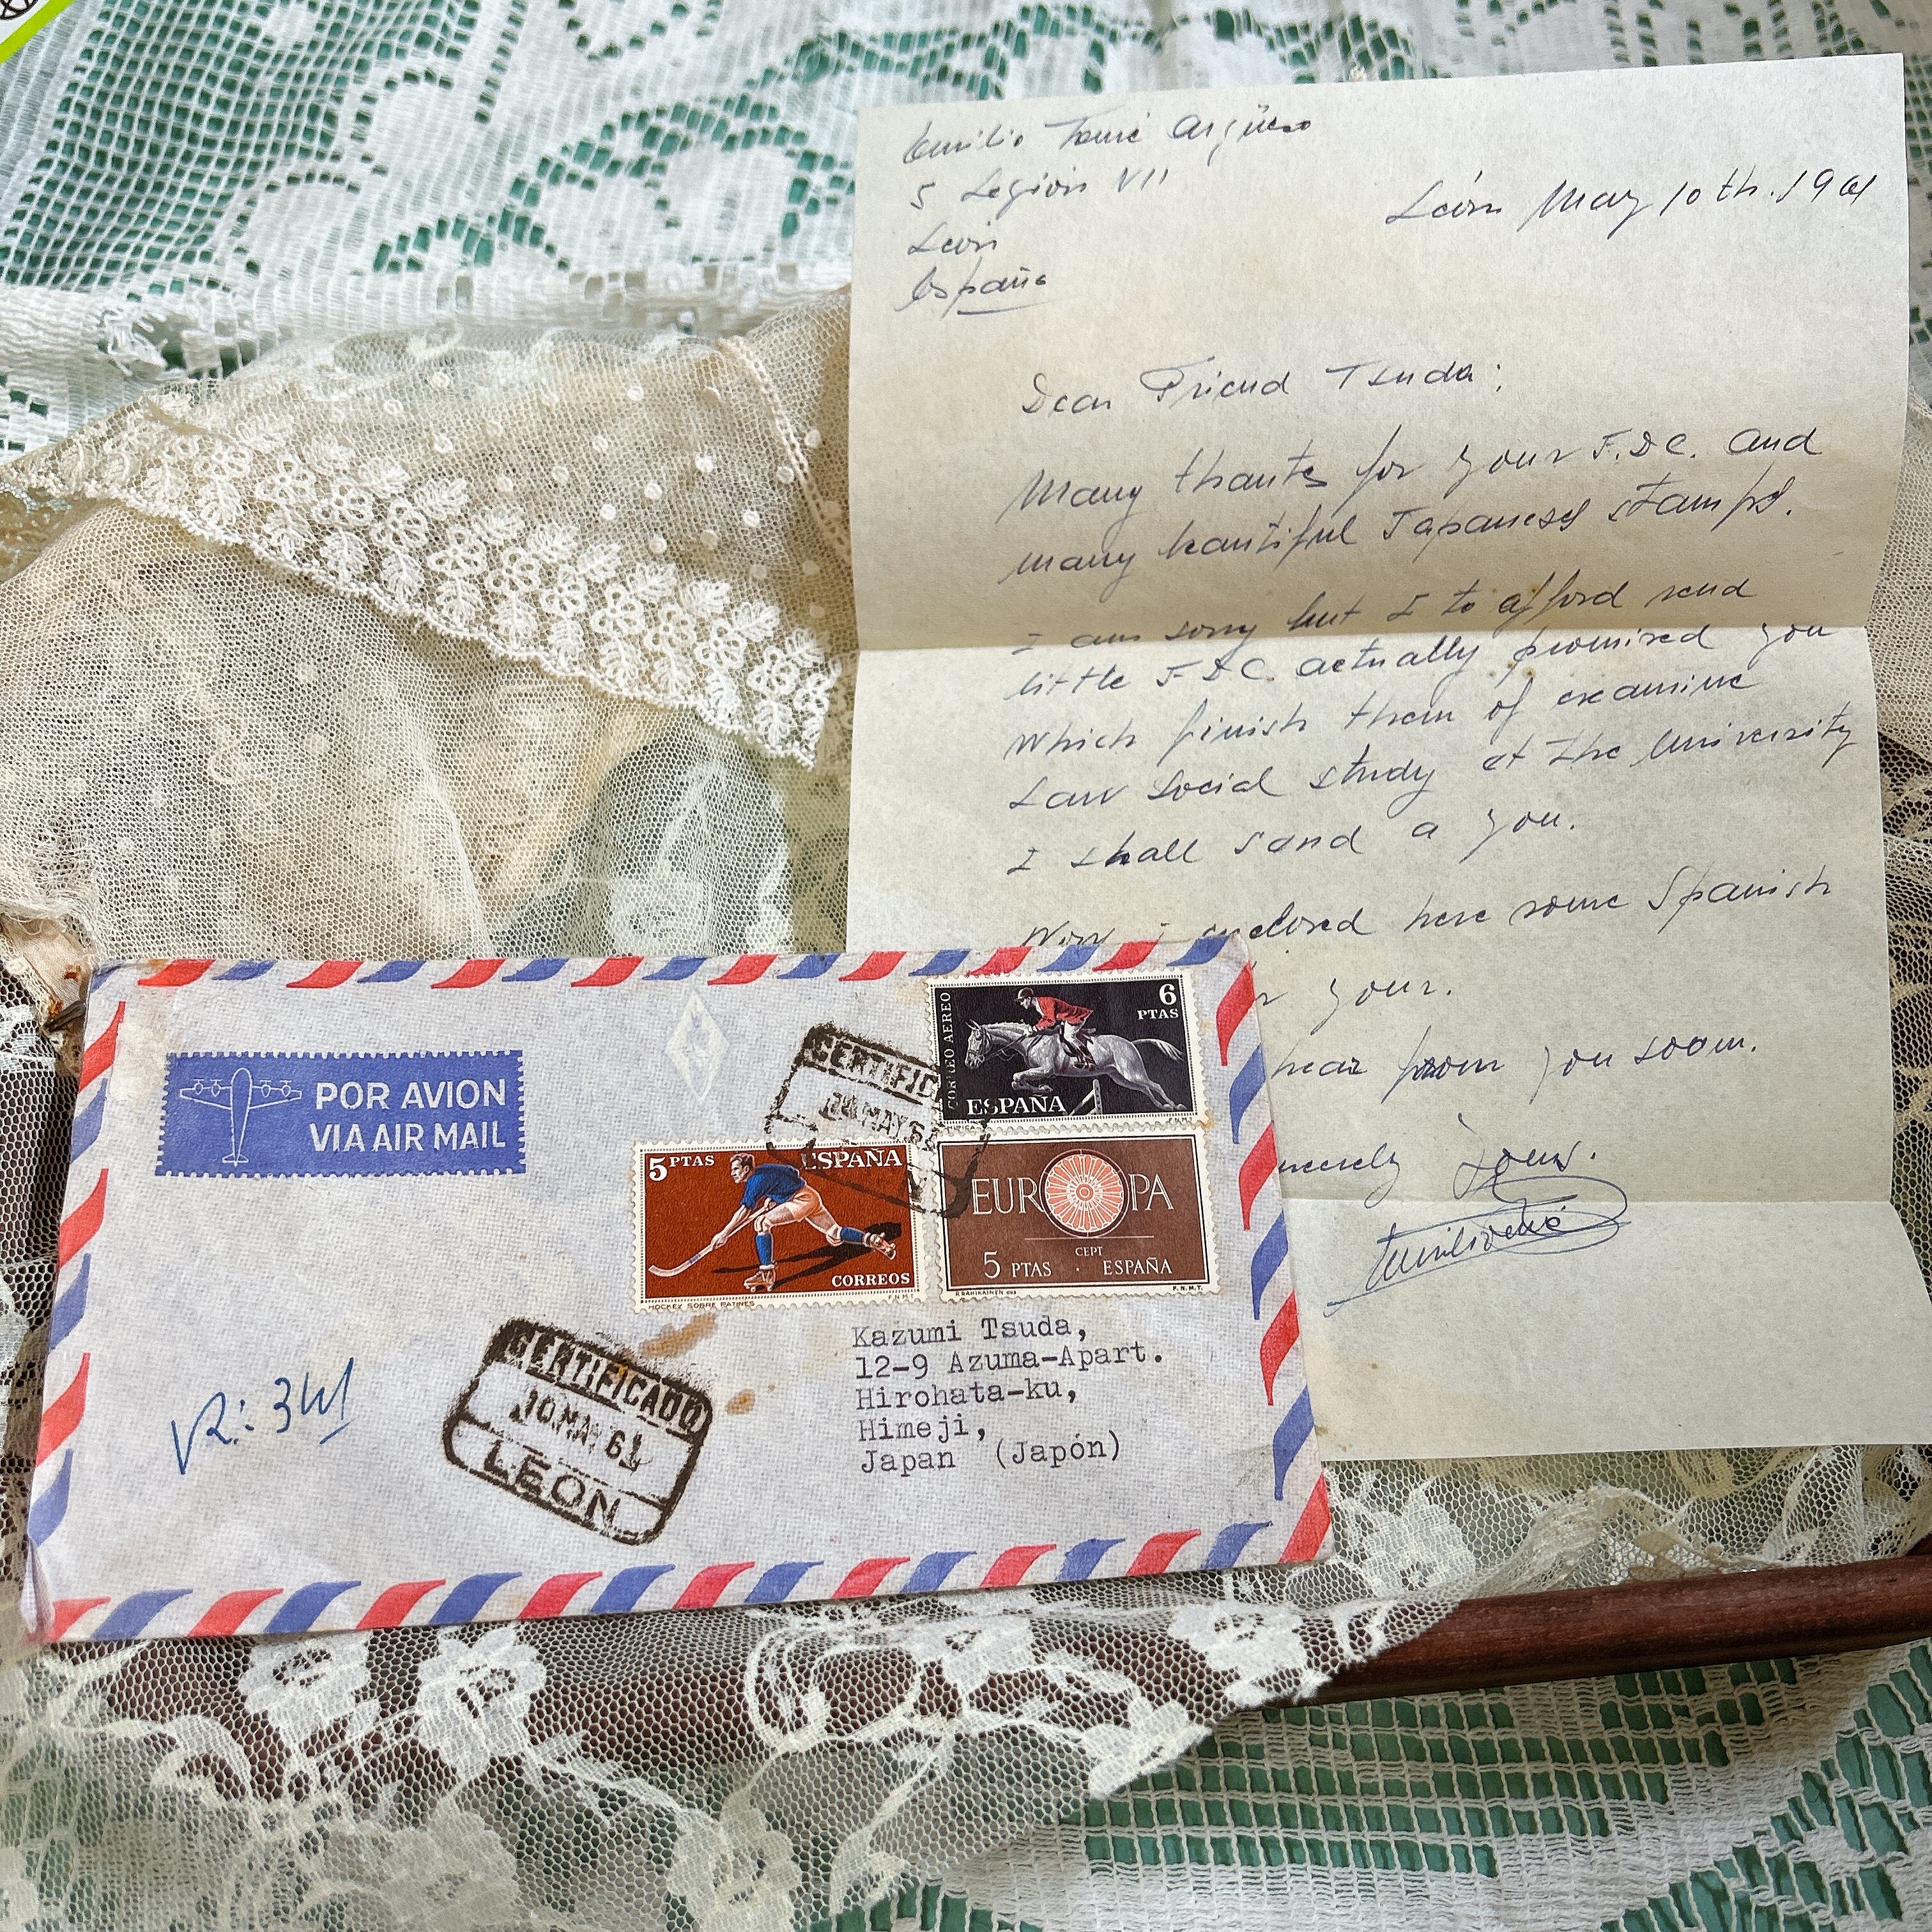 Emilio Tomé Argüeso
5 Legión VII
León
España
León May 10th. 1961
Dear Friend Tsuda:
Many thanks for your F.D.C. and
many beautiful Japanesed stamps.
I am sorry but I to afford send
little F.D.C. actually promised you
which finish them of examine
Law Social study at the University
I shall sand a you.
Now enclosed here some Spanish
your.
hear from you soom.
Yours.
POR AVION
VIA AIR MAIL
CERTIFIC
MAY 61
CORREO AEREO
6
PTAS
ESPAÑA
5 PTAS ESPAÑA
CORREOS
HOCKEY SOBRE PATINES F.N.M.T
EUROPA
CEPT
5 PTAS · ESPAÑA
F.N.M.T.
Kazumi Tsuda,
12-9 Azuma-Apart.
Hirohata-ku,
Himeji,
Japan (Japón)
R: 341
CERTIFICADO
10 MAY 61
LEON